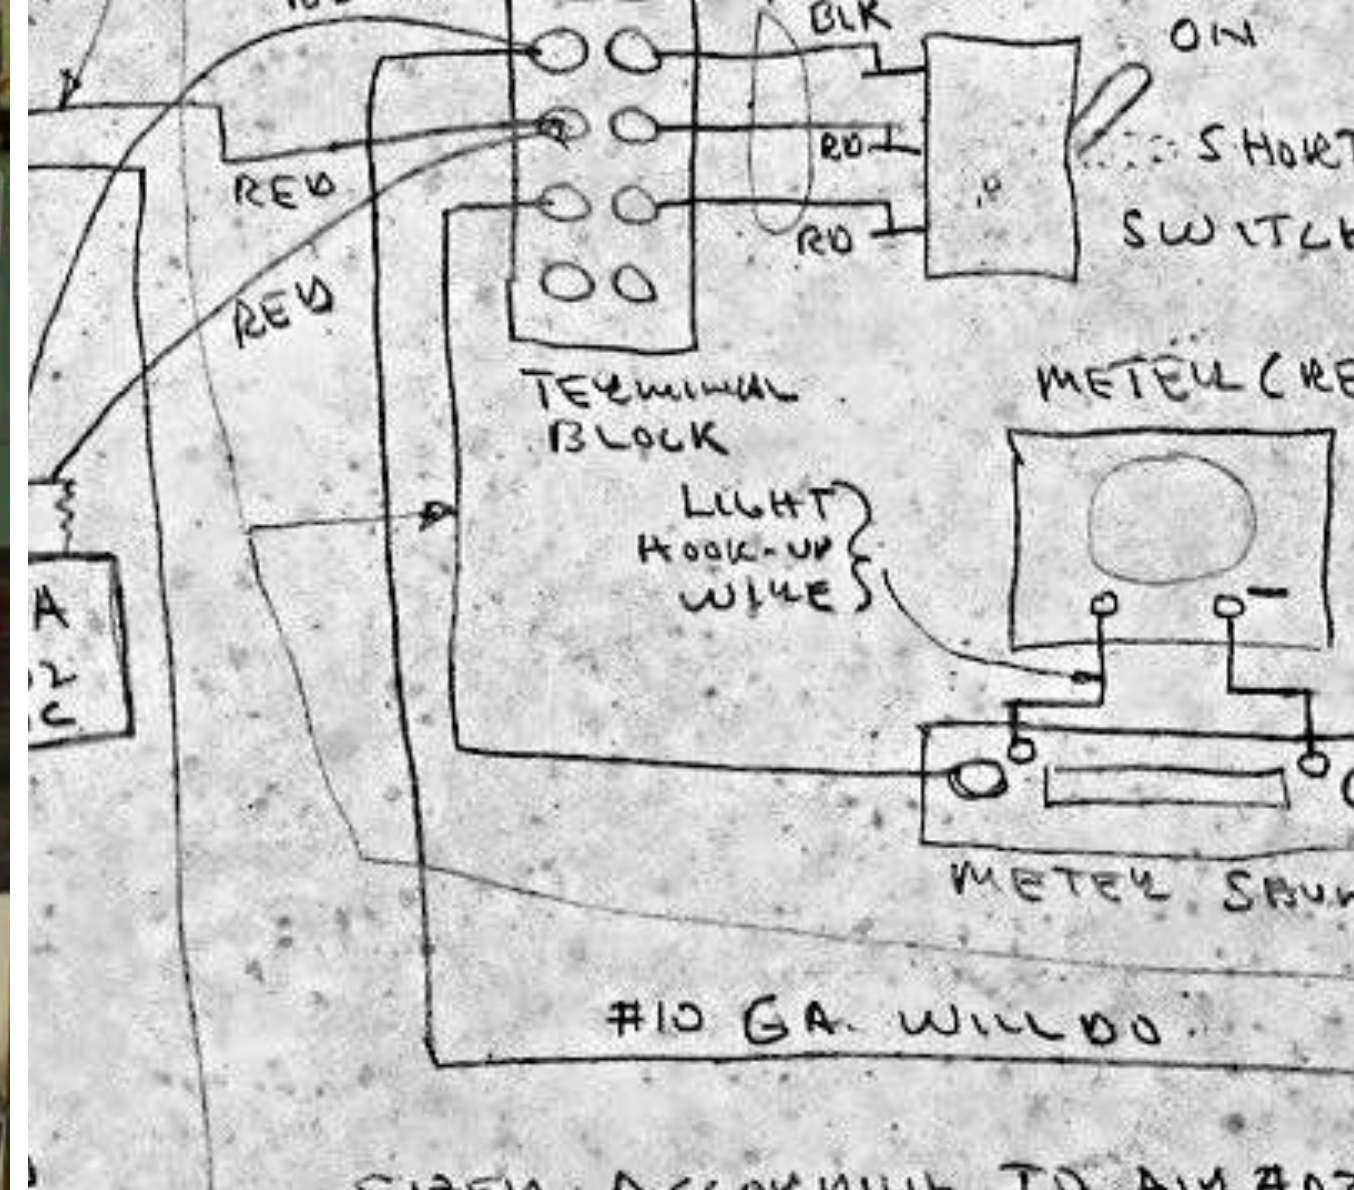 BLK
ON
RD
SHORT
RED
SWITCH
RD
RED
TERMINAL
BLOCK
METER (RE
LIGHT
HOOK-UP
WIRE
A
METER SHUN
#10 GA. WILL DO
TO